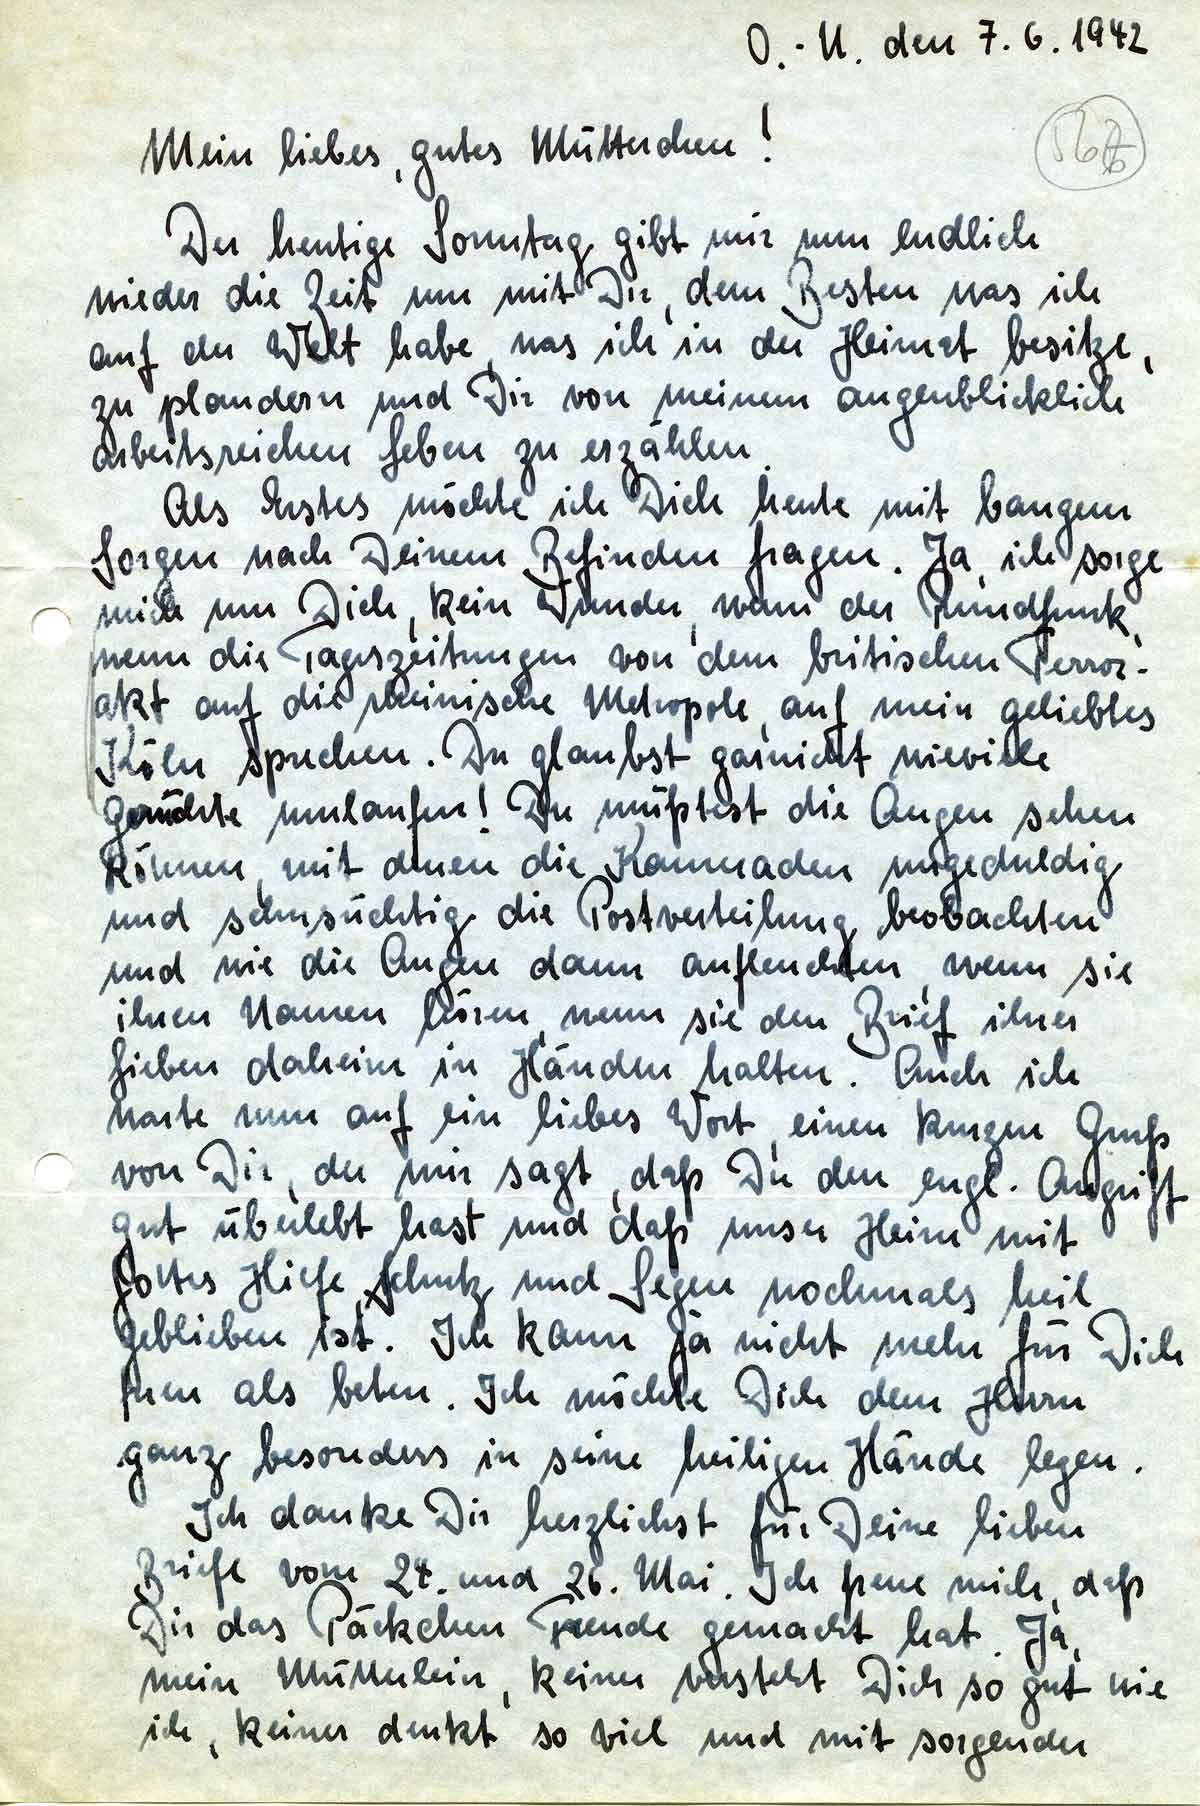 O.-U. den 7.6.1942
Mein liebes, gutes Mütterchen!
Der heutige Sonntag gibt mir nun endlich
wieder die Zeit um mit Dir, dem Besten was ich
auf der Welt habe, was ich in der Heimat besitze,
zu plaudern und Dir von meinem augenblicklich
arbeitsreichen Leben zu erzählen.
Als Erstes möchte ich Dich heute mit bangem
Sorgen nach Deinem Befinden fragen. Ja, ich sorge
mich um Dich, kein Wunder, wenn der Rundfunk,
wenn die Tageszeitungen von dem britischen Terror-
akt auf die rheinische Metropole, auf mein geliebtes
Köln sprechen. Du glaubst garnicht wieviele
Gerüchte umlaufen! Du müßtest die Augen sehen
können, mit denen die Kameraden ungeduldig
und sehnsüchtig die Postverteilung beobachten
und wie die Augen dann aufleuchten, wenn sie
ihren Namen hören, wenn sie den Brief ihrer
Lieben daheim in Händen halten. Auch ich
warte nun auf ein liebes Wort, einen kurzen Gruß
von Dir, der mir sagt, daß Du den engl. Angriff
gut überlebt hast und daß unser Heim mit
Gottes Hilfe, Schutz und Segen nochmals heil
geblieben ist. Ich kann ja nicht mehr für Dich
tuen als beten. Ich möchte Dich dem Herrn
ganz besonders in seine heiligen Hände legen.
Ich danke Dir herzlichst für Deine lieben
Briefe vom 24. und 26. Mai. Ich freue mich, daß
Dir das Päckchen Freude gemacht hat. Ja,
mein Mütterlein, keiner versteht Dich so gut wie
ich, keiner denkt so viel und mit sorgender